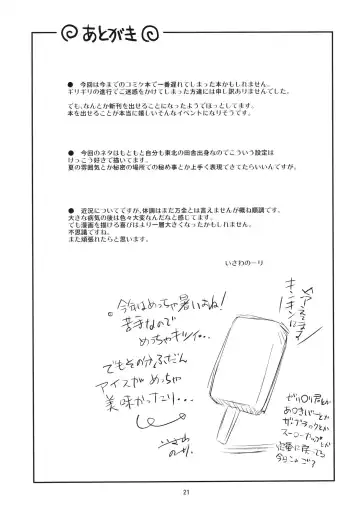 あとがき
● 今回は今までのコミケ本で一番遅れてしまった本かもしれません。
ギリギリの進行でご迷惑をかけてしまった方達には申し訳ありませんでした。
でも、なんとか新刊を出せることになったようでほっとしてます。
本を出せることが本当に嬉しいそんなイベントになりそうです。
● 今回のネタはもともと自分も東北の田舎出身なのでこういう設定は
けっこう好きで描いてます。
夏の雰囲気とか秘密の場所での秘め事とか上手く表現できてたらいいんですが。
● 近況についてですが、体調はまだ万全とは言えませんが概ね順調です。
大きな病気の後は色々大変なんだなと感じてます。
でも漫画を描ける喜びはより一層大きくなった気もします。
不思議ですね。
また頑張れたらと思います。
いさわのーり
今年はめっちゃ暑いよね!
苦手なので
めっちゃキツイ…
でもその分ふだん
アイスがめっちゃ
美味かったり…
いさわ
のーり
キンキンに
ガリガリ君とか
あずきバーとか
ザ・ブラックとか
スーパーカップとか
21